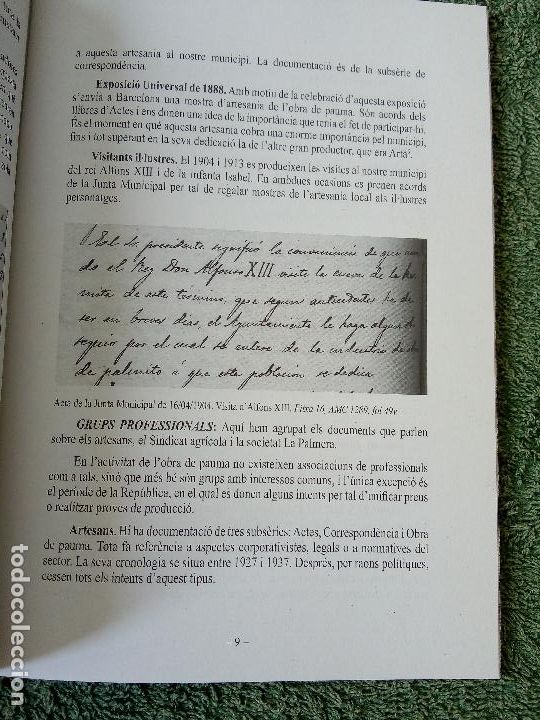 a aquesta artesania al nostre municipi. La documentació és de la subsèrie de
correspondència.
Exposició Universal de 1888. Amb motiu de la celebració d'aquesta exposició
s'envia a Barcelona una mostra d'artesania de l'obra de pauma. Són acords dels
llibres d'Actes i ens donen una idea de la importància que tenia el fet de participar-hi.
És el moment en què aquesta artesania cobra una enorme importància pel municipi,
fins i tot superant en la seva dedicació la de l'altre gran productor, que era Artà
Visitants il·lustres. El 1904 i 1913 es produeixen les visites al nostre municipi
del rei Alfons XIII i de la infanta Isabel. En ambdues ocasions es prenen acords
de la Junta Municipal per tal de regalar mostres de l'artesania local als il·lustres
personatges.
El Sr. presidente significó la conveniencia de que cuan
do el Rey Don Alfonso XIII visite la cueva de la Her
mita de este término, que segun antecedentes ha de
ser en breves dias, el Ayuntamiento le haga algun ob
sequio por el cual se entere de la industria de obra
de palmito á que esta poblacion se dedica
Acta de la Junta Municipal de 16/04/1904. Visita d'Alfons XIII. Fitxa 16, AMC 1289, foi 49v
GRUPS PROFESSIONALS: Aquí hem agrupat els documents que parlen
sobre els artesans, el Sindicat agrícola i la societat La Palmera.
En l'activitat de l'obra de pauma no existeixen associacions de professionals
com a tals, sinó que més bé són grups amb interessos comuns, i l'única excepció és
el període de la República, en el qual es donen alguns intents per tal d'unificar preus
o realitzar proves de producció.
Artesans. Hi ha documentació de tres subsèries: Actes, Correspondència i Obra
de pauma. Tota fa referència a aspectes corporativistes, legals o a normatives del
sector. La seva cronologia se situa entre 1927 i 1937. Després, per raons polítiques,
cessen tots els intents d'aquest tipus.
- 9 -
todocoleccion.net